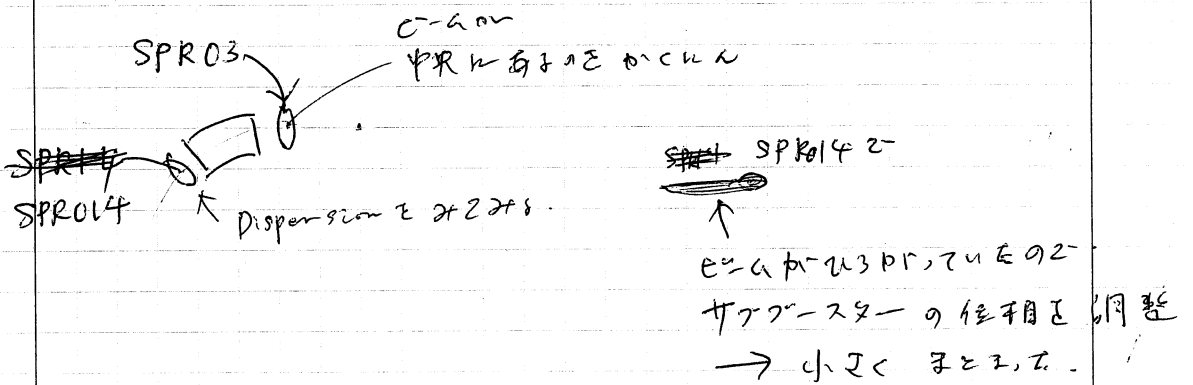 ビームが
SPR03
中央にあるのをかくにん
SPR014
SPR014
Dispersionをみてみる.
SPR014で
ビームがひろがっていたので
サブブースターの位相を調整
→ 小さくまとまった.